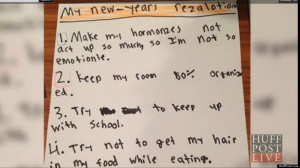 My new-years rezalotion
1. Make my hormones not
act up so much so I'm not so
emotionle.
2. Keep my room 80% organiz
ed.
3. Try to keep up
with school.
4. Try not to get my hair
in my food while eating.
HUFF
POST
LIVE